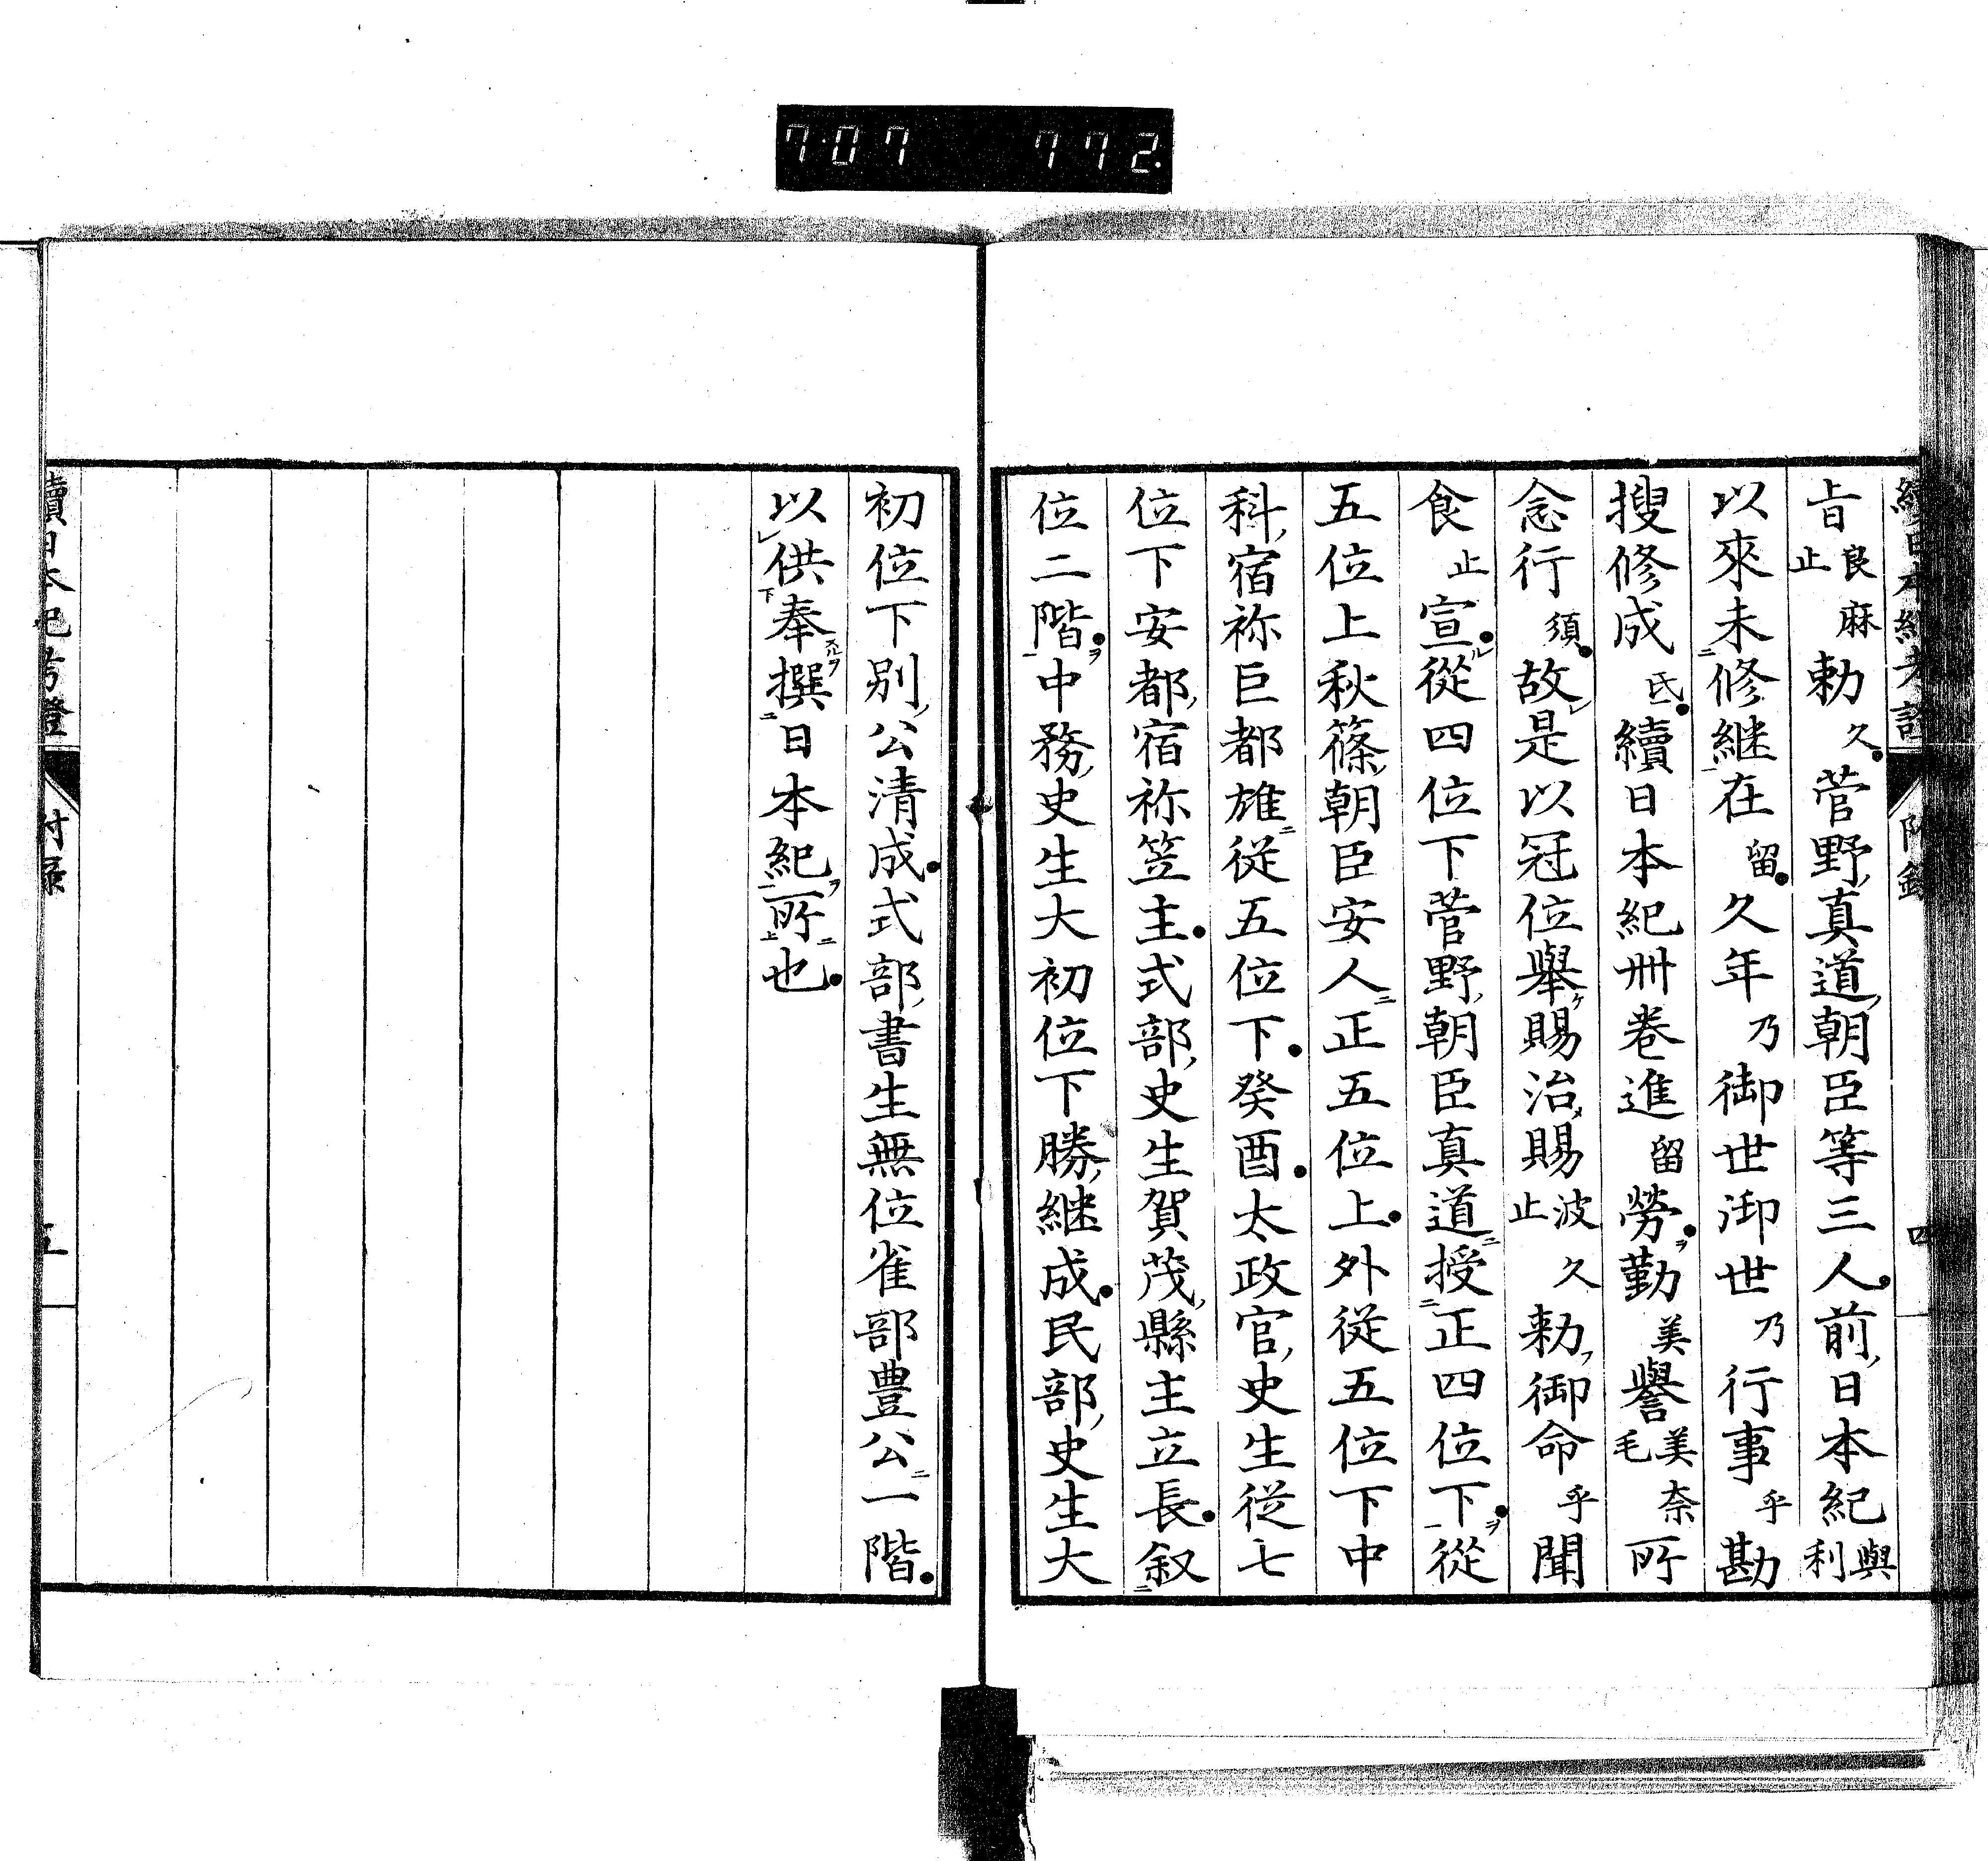 7.07 772.
旨良麻止勅久菅野真道朝臣等三人前日本紀與利
以來未修継在留久年乃御世御世乃行事乎勘
搜修成氐續日本紀卌卷進留勞勤美譽美奈毛所
念行須故是以冠位舉賜治賜波久止勅御命乎聞
食止宣從四位下菅野朝臣真道授正四位下從
五位上秋篠朝臣安人正五位上外從五位下中
科宿祢巨都雄從五位下癸酉太政官史生從七
位下安都宿祢笠主式部史生賀茂縣主立長叙
位二階中務史生大初位下勝継成民部史生大
初位下別公清成式部書生無位雀部豊公一階
以供奉撰日本紀所也
續日本紀考證 附録 四
續日本紀考證 附録 五